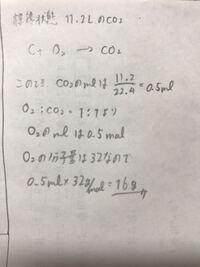 標準状態 11.2LのCO2
C + O2 → CO2
このとき CO2のmlは 11.2/22.4 = 0.5ml
O2 : CO2 = 1 : 1より
O2のmlは0.5mol
O2の分子量は32なので
0.5ml×32g/mol = 16g